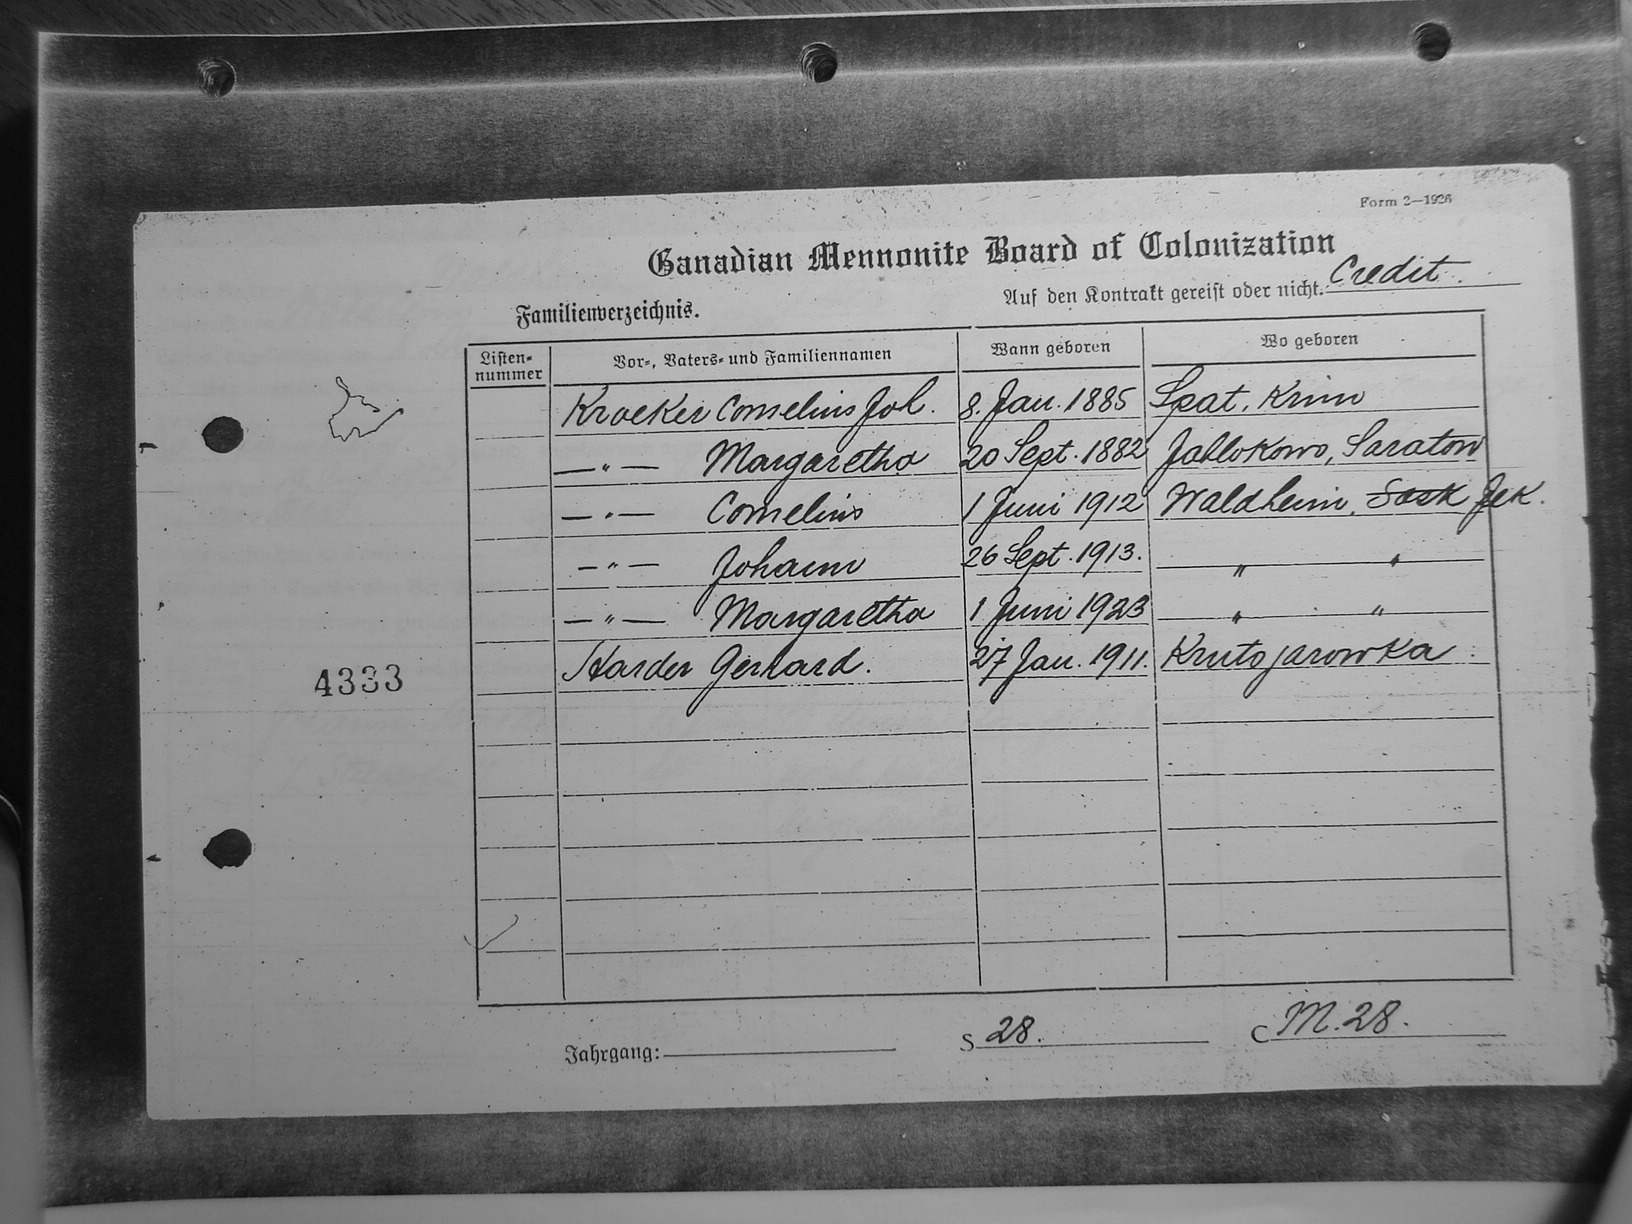 Form 2—1926
Canadian Mennonite Board of Colonization
Familienverzeichnis.
Auf den Kontrakt gereist oder nicht: Credit.
Listen-nummer Vor-, Vaters- und Familiennamen Wann geboren Wo geboren
Kroeker Cornelius Joh. 8. Jan. 1885 Spat, Krim
—"— Margaretha 20 Sept. 1882 Jablokowo, Saratow
—"— Cornelius 1 Juni 1912 Waldheim, Sask Jek.
—"— Johann 26 Sept. 1913. " "
—"— Margaretha 1 Juni 1923 " "
Harder Gerhard. 27 Jan. 1911. Krutojarowka
4333
Jahrgang: S 28. C M. 28.